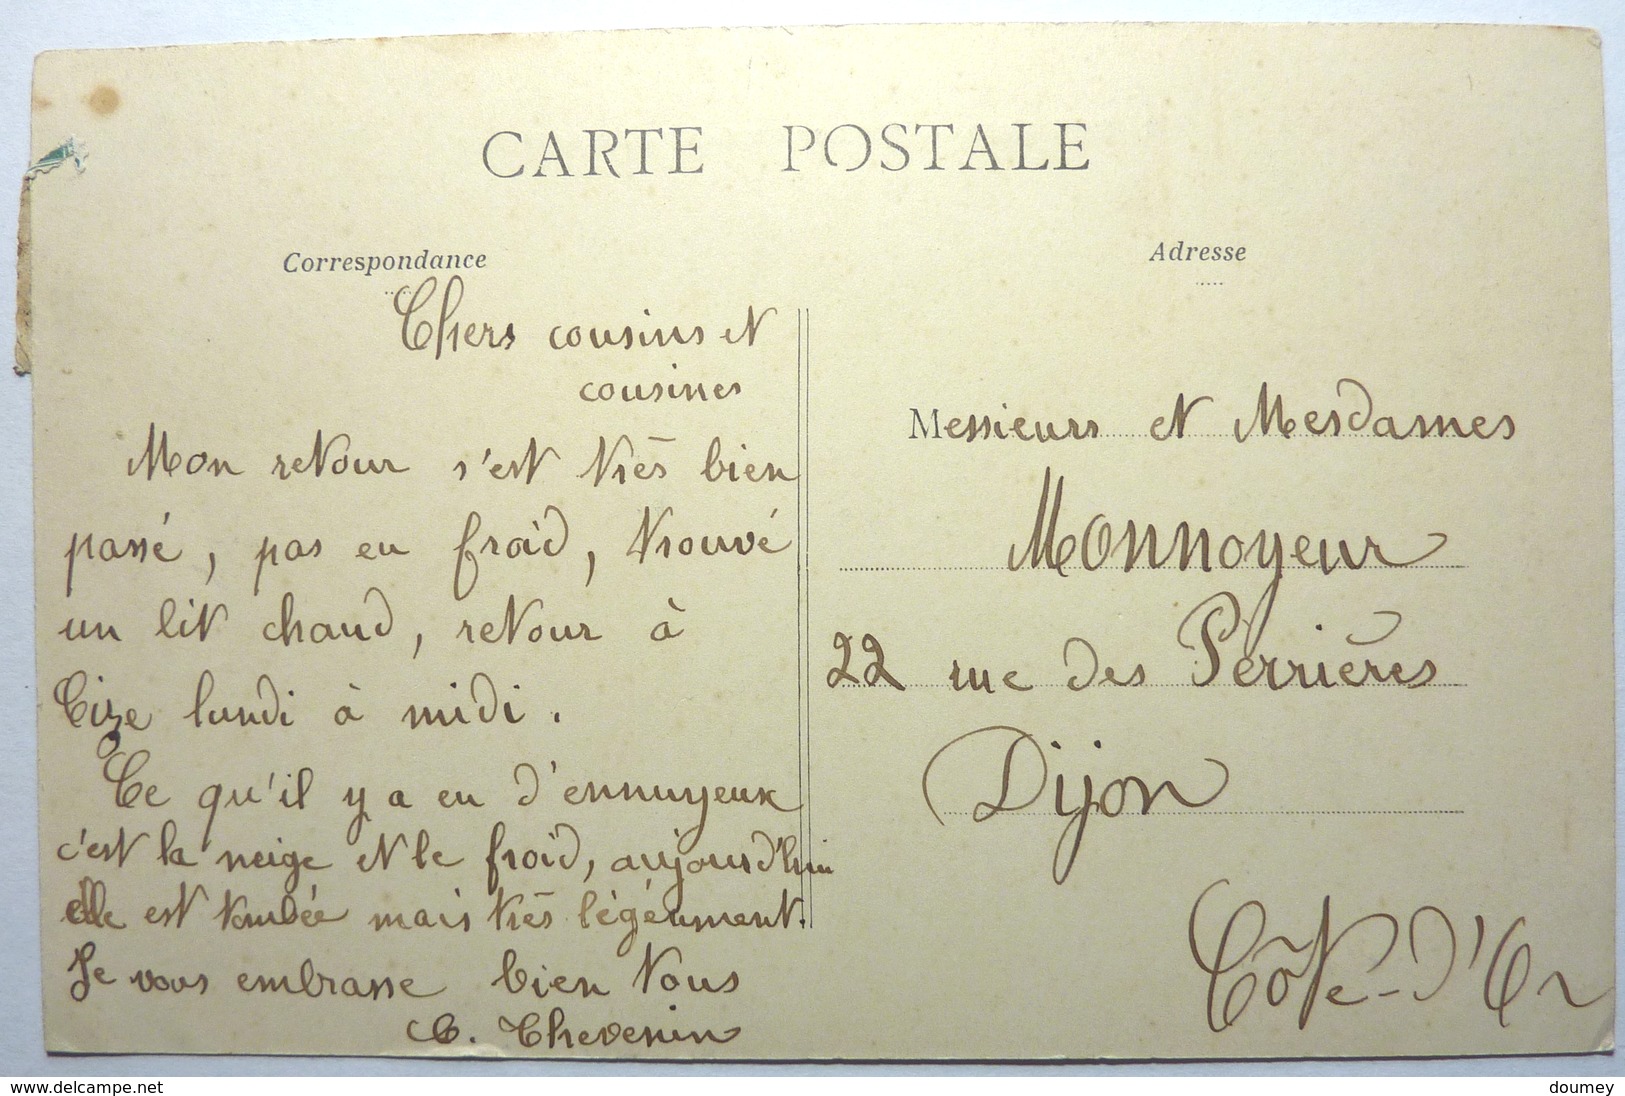 CARTE POSTALE
Correspondance
Chers cousins et
cousines
Mon retour s'est très bien
passé, pas eu froid, trouvé
un lit chaud, retour à
Cize lundi à midi.
Ce qu'il y a eu d'ennuyeux
c'est la neige et le froid, aujourd'hui
elle est tombée mais très légérement.
Je vous embrasse bien tous
C. Thevenin
Adresse
Messieurs et Mesdames
Monnoyeur
22 rue des Perrières
Dijon
Côte-d'Or
www.delcampe.net
doumey